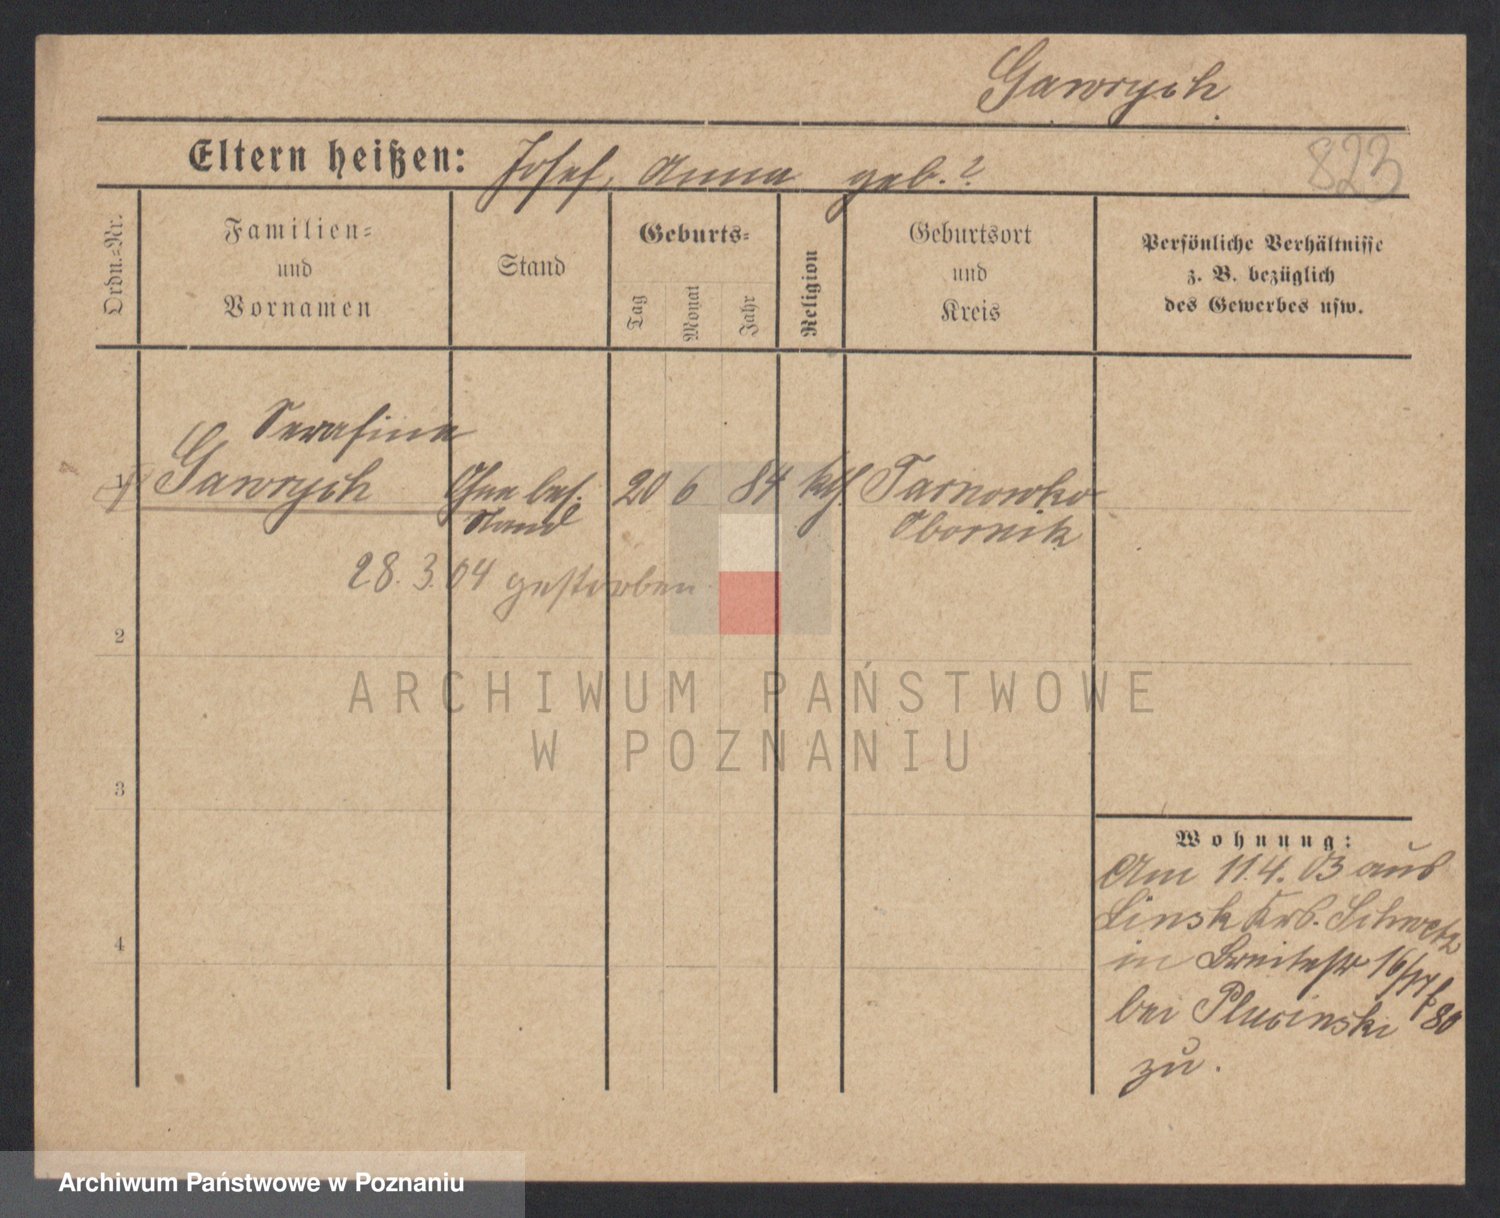 Gawrych
823
Eltern heißen: Josef, Anna geb. ?
Ordn.=Nr.
Familien=
und
Vornamen
Stand
Geburts=
Tag
Monat
Jahr
Religion
Geburtsort
und
Kreis
Persönliche Verhältnisse
z. B. bezüglich
des Gewerbes usw.
Serafine
1 Gawrych Ohne bes. 20 6 84 kth. Tarnowko
Stand Obornik
28.3.04 gestorben
2
3
4
Wohnung:
Am 11.4.03 aus
Linsk Krs. Schwetz
in Breitestr 16/17
bei Plucinski 80
zu.
ARCHIWUM PAŃSTWOWE
W POZNANIU
Archiwum Państwowe w Poznaniu